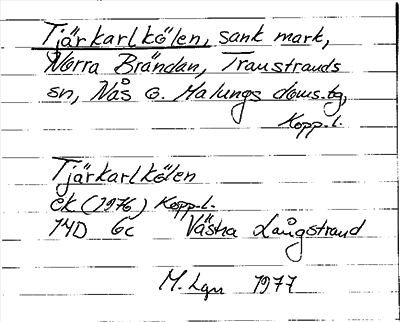 Tjärkarlkölen, sank mark,
Norra Brändan, Transtrands
sn, Nås o. Malungs doms.bg,
Kopp.l.
Tjärkarlkölen
ek (1976) Kopp.l.
14D 6c Västra Långstrand
M. Lgn 1977